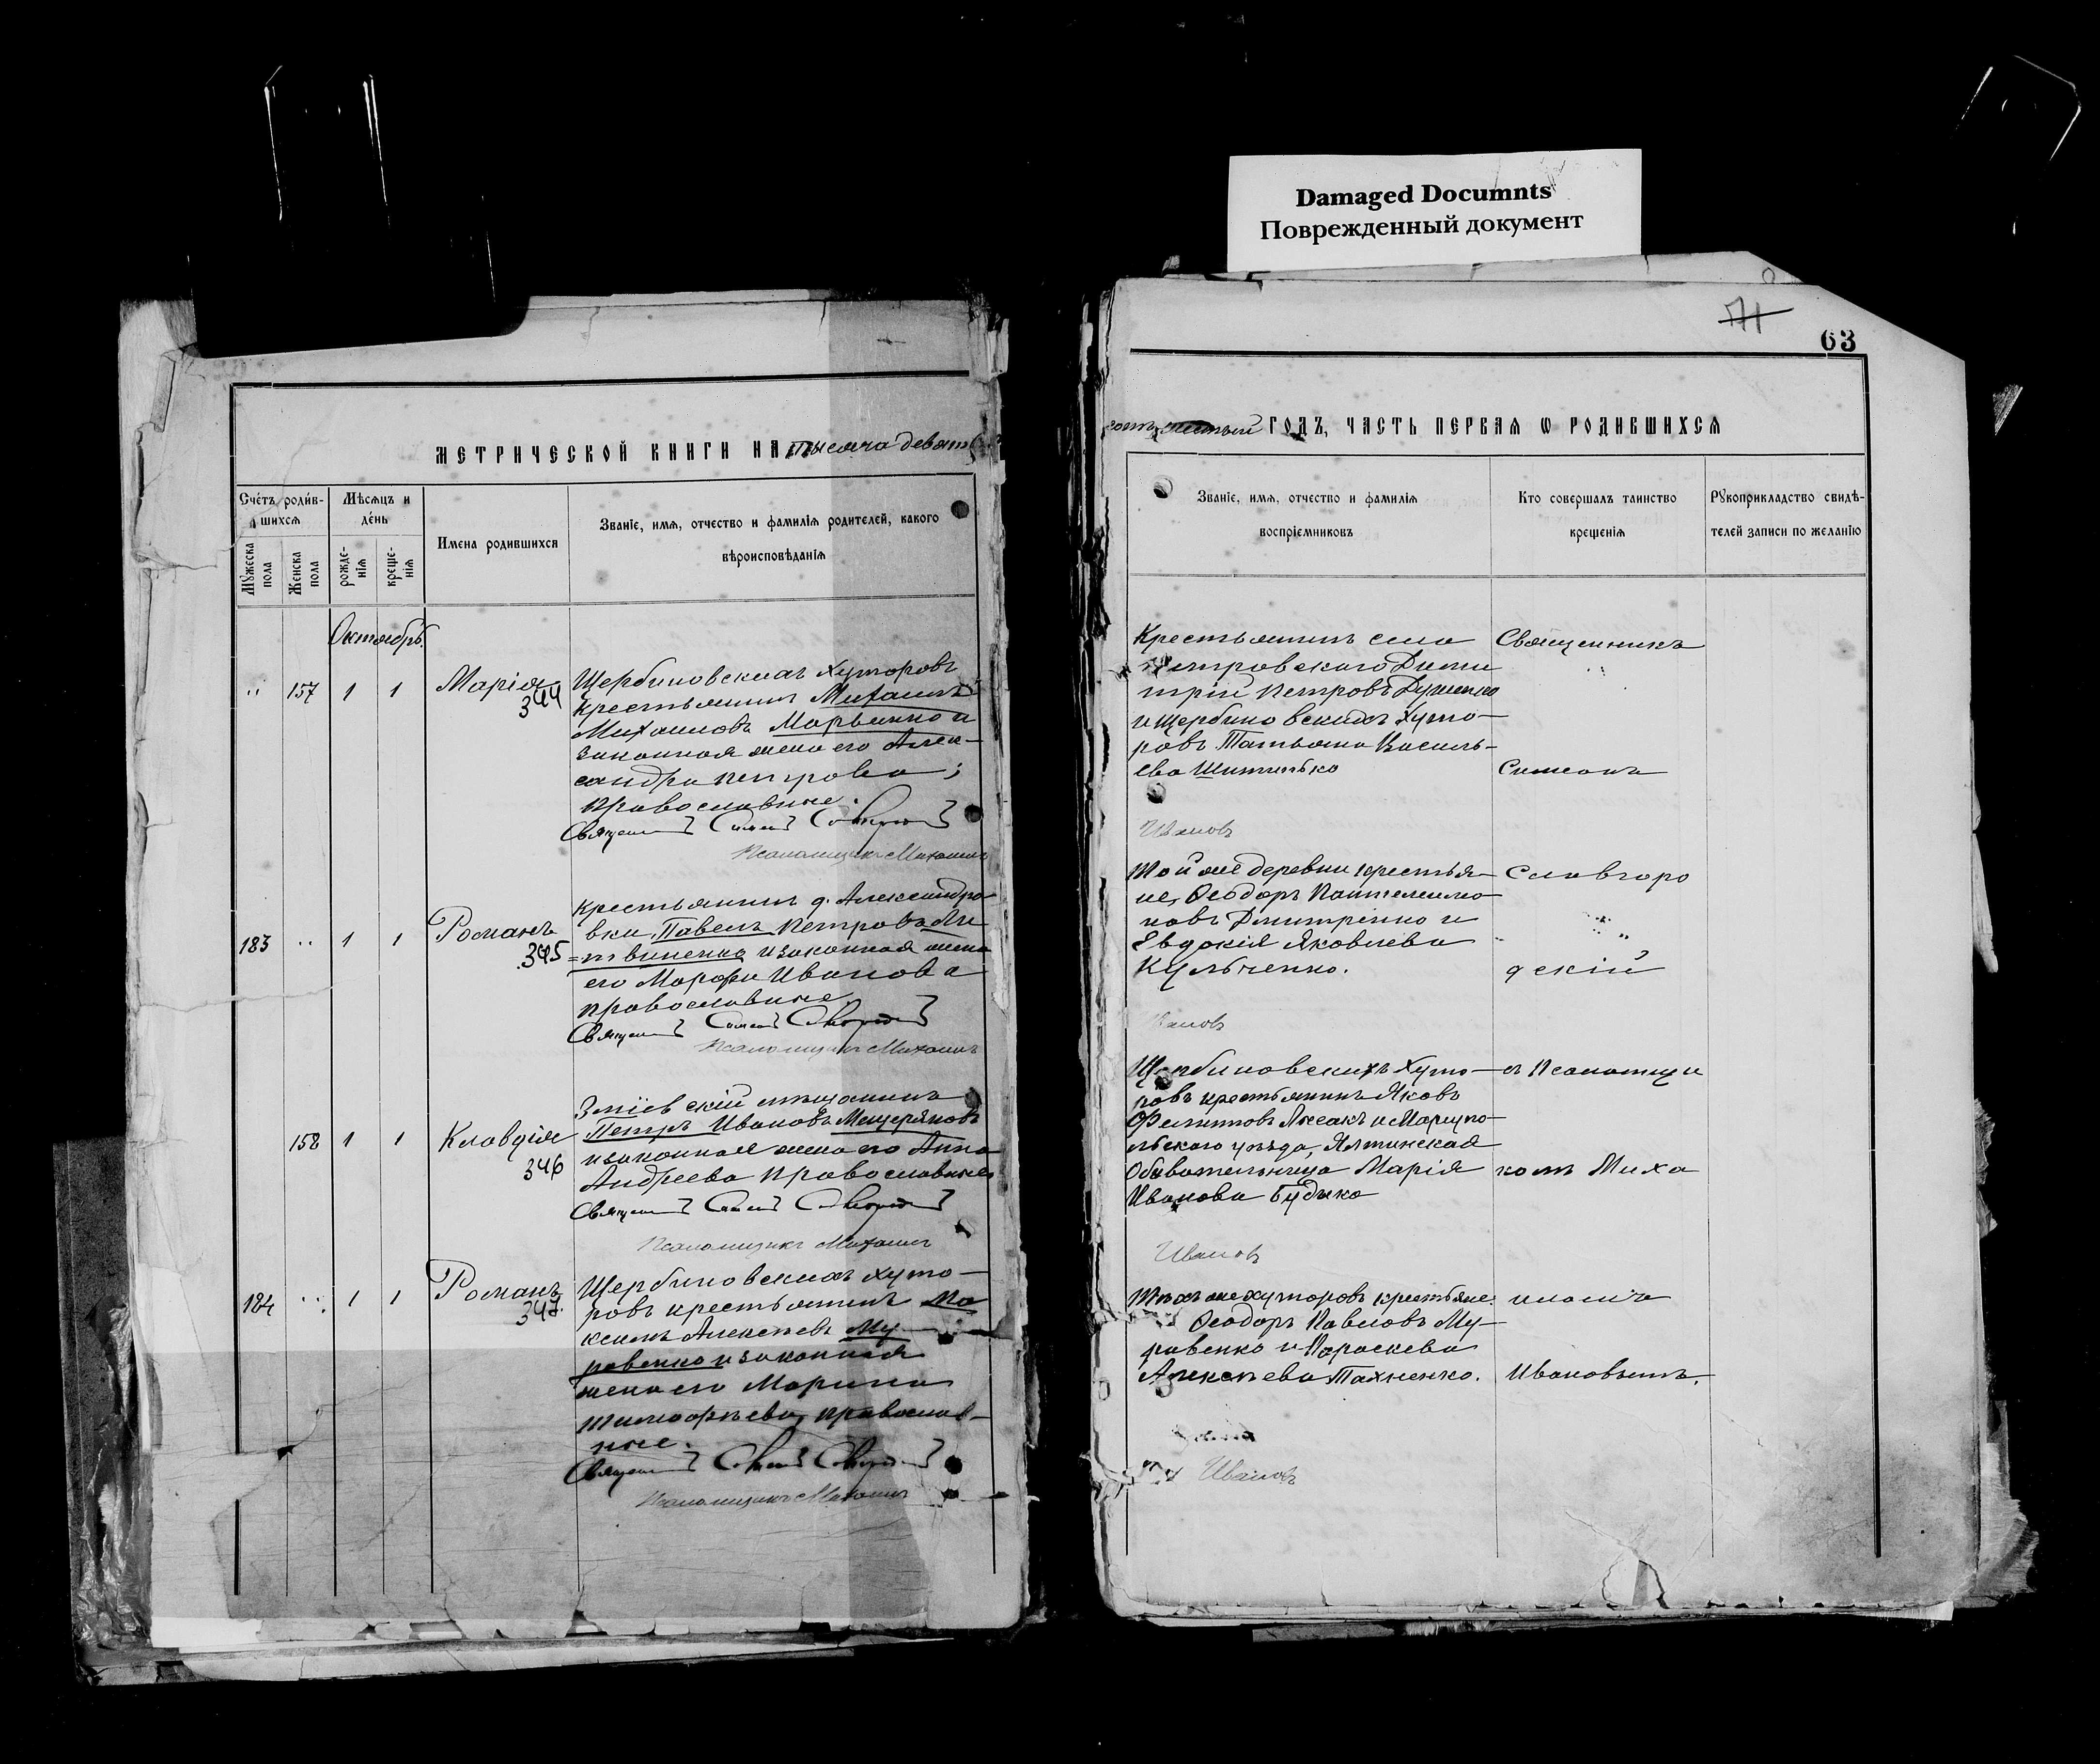 Damaged Documnts
Поврежденный документ
71
63
МЕТРИЧЕСКОЙ КНИГИ НА тысяча девять
сотъ ГОДЪ, ЧАСТЬ ПЕРВАЯ Ѡ РОДИВШИХСЯ
Счётъ роди́в-
шихся
Мѣсяцъ и
де́нь
Имена родившихся
Званіе, имя, отчество и фамилія родителей, какого
вѣроисповѣданія
Мужеска
пола
Женска
пола
рожде-
нія
креще-
нія
Званіе, имя, отчество и фамилія
воспріемниковъ
Кто совершалъ таинство
крещенія
Рукоприкладство свидѣ-
телей записи по желанію
Октябрь.
" 157 1 1 Марія
344
Щербиновскихъ хуторовъ
крестьянинъ Михаилъ
Михаиловъ Марченко и
законная жена его Алек-
сандра Петрова;
православные.
Священ Симеон
Псаломщикъ Михаилъ
Крестьянинъ села
Петровскаго Дими
трій Петровъ
и Щербиновскихъ Хуто-
ровъ Татьяна Василь-
ева
Священникъ
Симеонъ
Ивановъ
183 " 1 1 Романъ
345
Крестьянинъ д. Александро
вки, Павелъ Петровъ Ли
=твиненко и законная жена
его Марфа Иванова
православные
Священ Симеон
Псаломщикъ Михаилъ
Той же деревни крестья-
не, Ѳеодоръ Пантелеимо
новъ Дмитренко и
Евдокія Яковлева
Кульченко.
Славгоро
дскій
Ивановъ
158 1 1 Клавдія
346
Зміевскій мѣщанинъ
Петръ Ивановъ Мещеряковъ
и законная жена его Анна
Андреева православные
Священ Симеон
Псаломщикъ Михаилъ
Щербиновскихъ Хуто-
ровъ крестьянинъ Яковъ
Филиповъ и Мариупо-
льскаго уѣзда, Ялтинская
Обывательница Марія
Иванова Будыка
съ Псаломщи
комъ Миха
Ивановъ
184 " 1 1 Романъ
347.
Щербиновскихъ хуто-
ровъ крестьянинъ Ма
ксимъ Алексѣевъ Му
равенко и законная
жена его Марина
Тимофѣева, православ-
ные.
Священ Симеон
Псаломщикъ Михаилъ
Тѣхъ же хуторовъ крестьяне
Ѳеодоръ Павловъ Му-
равенко и Параскева
Алексѣева Тахненко.
иломъ
Ивановымъ.
Ивановъ